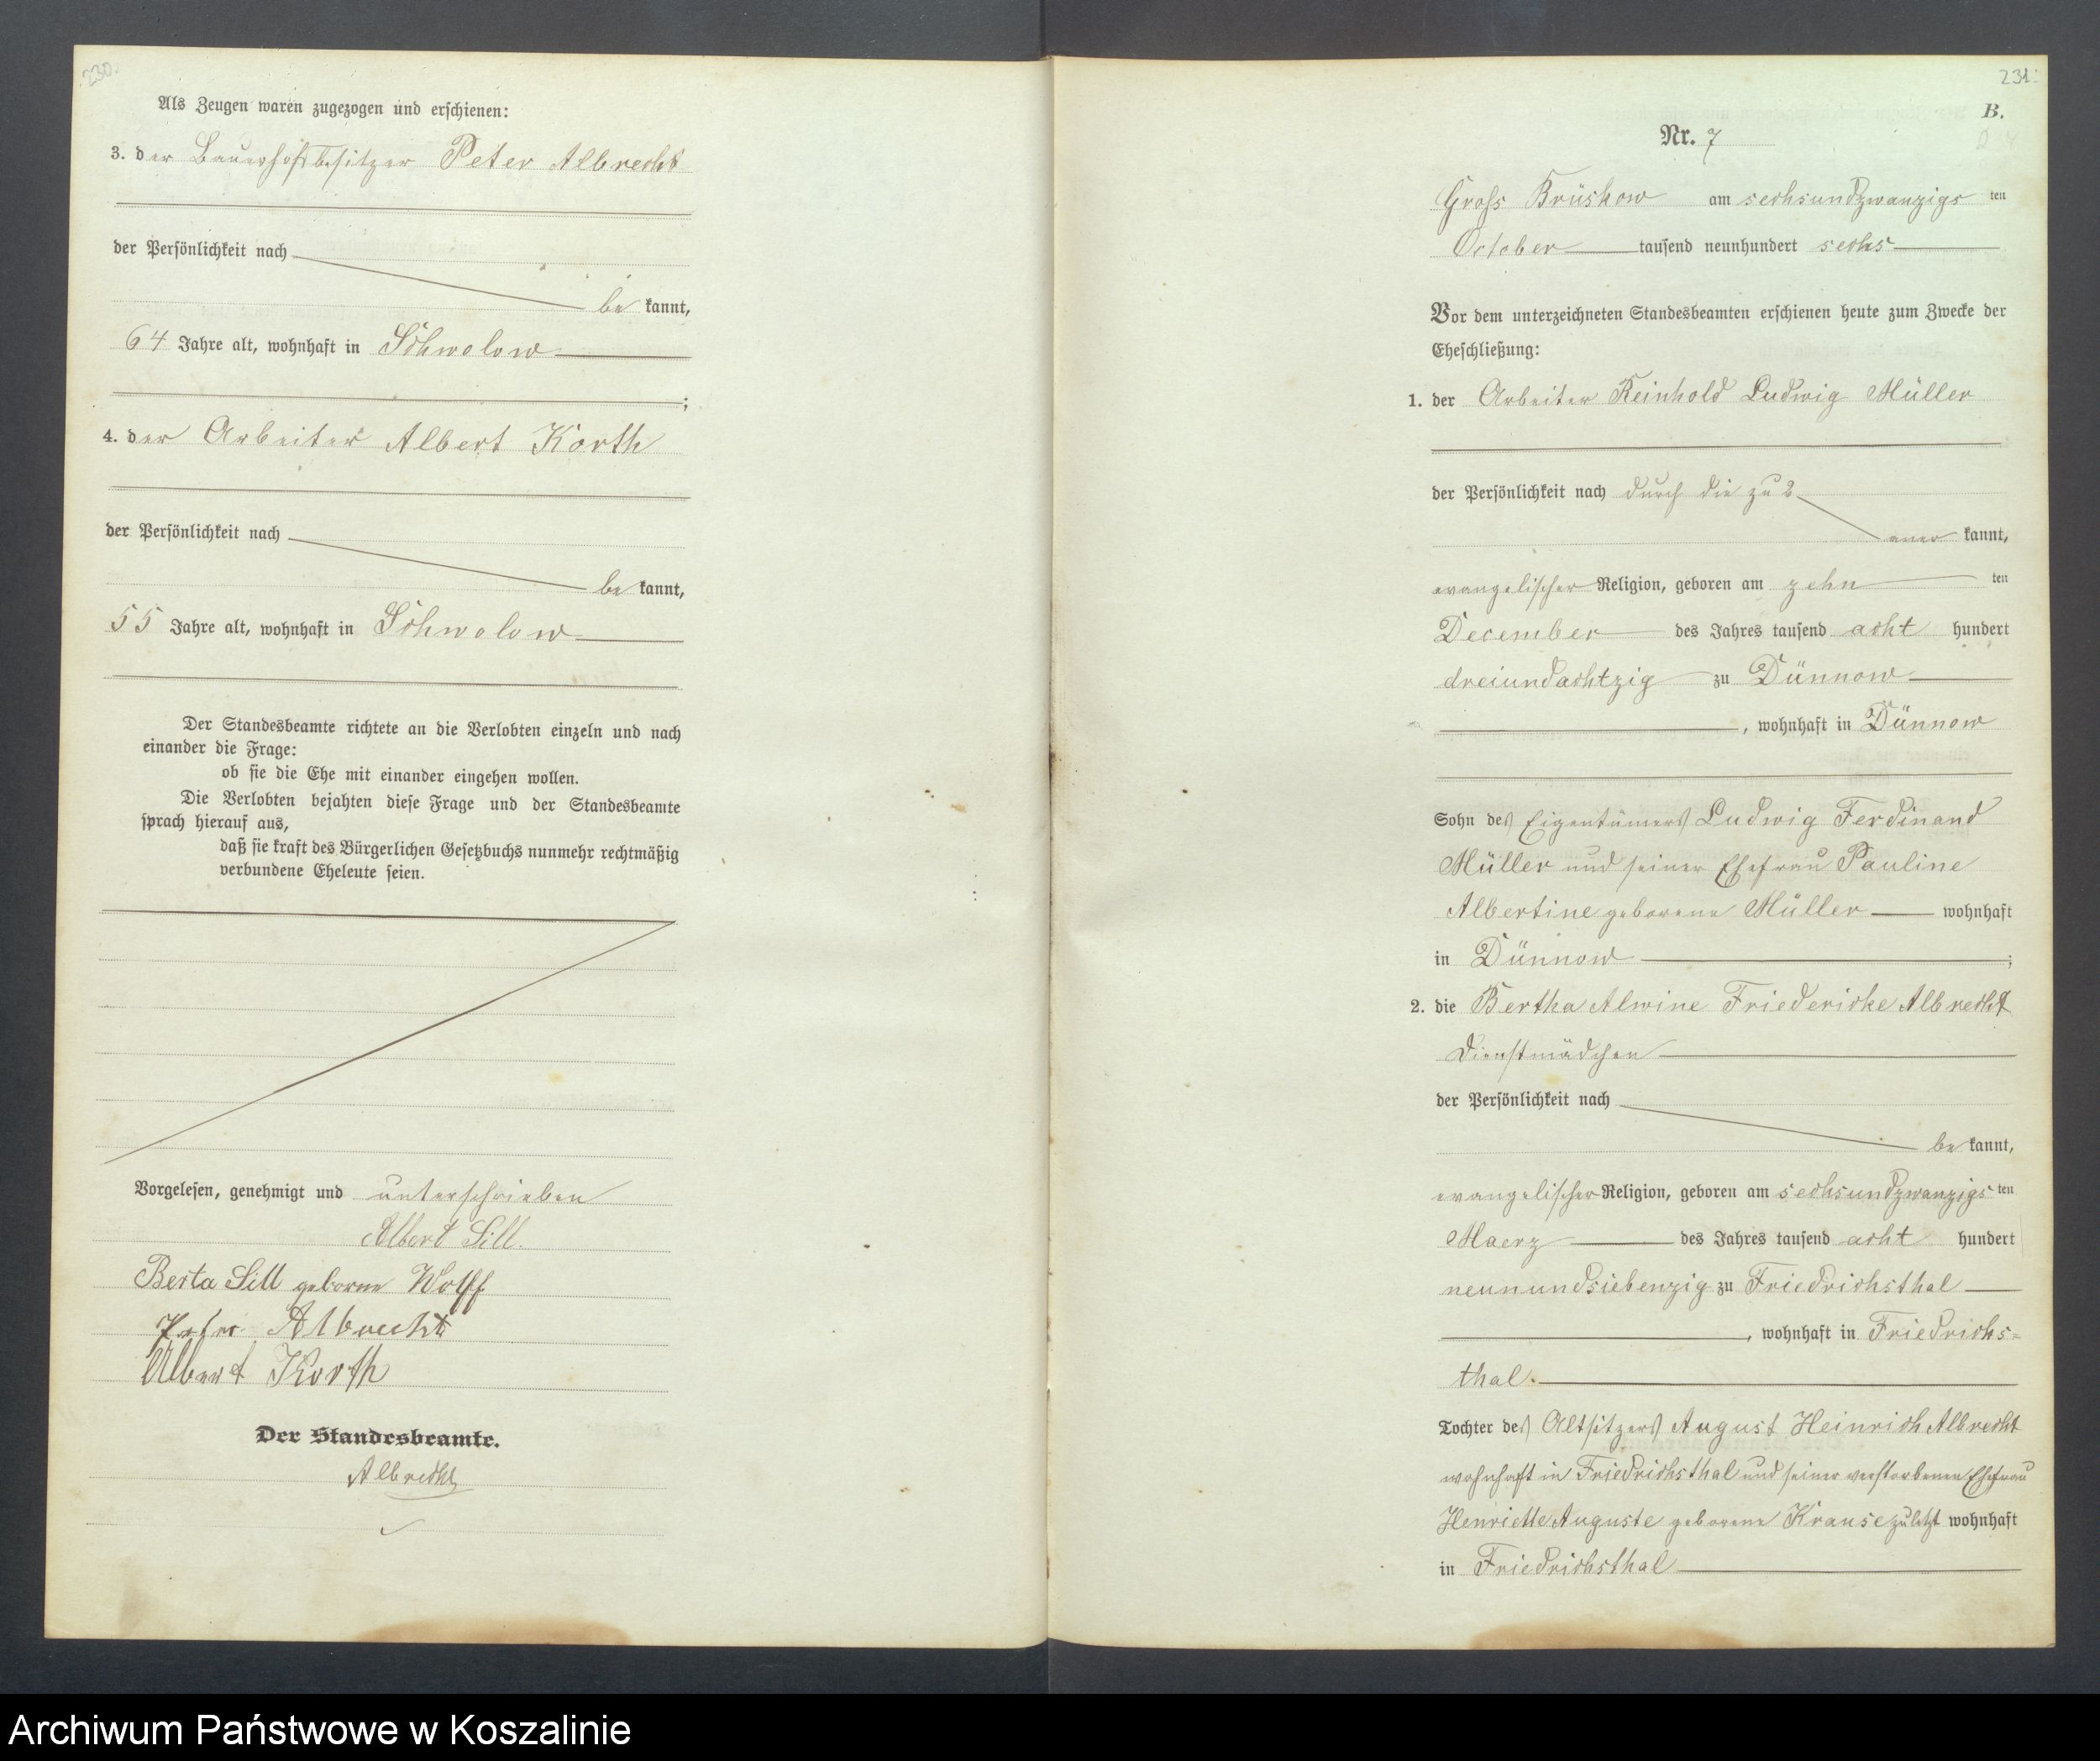 230.
Als Zeugen waren zugezogen und erschienen:
3. der Bauerhofsbesitzer Peter Albrecht
der Persönlichkeit nach
be kannt,
64 Jahre alt, wohnhaft in Schwolow
;
4. der Arbeiter Albert Korth
der Persönlichkeit nach
be kannt,
55 Jahre alt, wohnhaft in Schwolow
Der Standesbeamte richtete an die Verlobten einzeln und nach
einander die Frage:
ob sie die Ehe mit einander eingehen wollen.
Die Verlobten bejahten diese Frage und der Standesbeamte
sprach hierauf aus,
daß sie kraft des Bürgerlichen Gesetzbuchs nunmehr rechtmäßig
verbundene Eheleute seien.
Vorgelesen, genehmigt und unterschrieben
Albert Sill.
Berta Sill geborne Wolff
Peter Albrecht
Albert Korth
Der Standesbeamte.
Albrecht
231.
B.
Nr. 7
Gross Brüskow am sechsundzwanzigs ten
October tausend neunhundert sechs
Vor dem unterzeichneten Standesbeamten erschienen heute zum Zwecke der
Eheschließung:
1. der Arbeiter Reinhold Ludwig Müller
der Persönlichkeit nach durch die zu 2
aner kannt,
evangelischer Religion, geboren am zehn ten
December des Jahres tausend acht hundert
dreiundachtzig zu Dünnow
, wohnhaft in Dünnow
Sohn des Eigentümers Ludwig Ferdinand
Müller und seiner Ehefrau Pauline
Albertine geborene Müller wohnhaft
in Dünnow ;
2. die Bertha Alwine Friedericke Albrecht
Dienstmädchen
der Persönlichkeit nach
be kannt,
evangelischer Religion, geboren am sechsundzwanzigs ten
Maerz des Jahres tausend acht hundert
neunundsiebenzig zu Friedrichsthal
, wohnhaft in Friedrichs-
thal.
Tochter des Altsitzers August Heinrich Albrecht
wohnhaft in Friedrichsthal und seiner verstorbenen Ehefrau
Henriette Auguste geborene Krause zuletzt wohnhaft
in Friedrichsthal
Archiwum Państwowe w Koszalinie